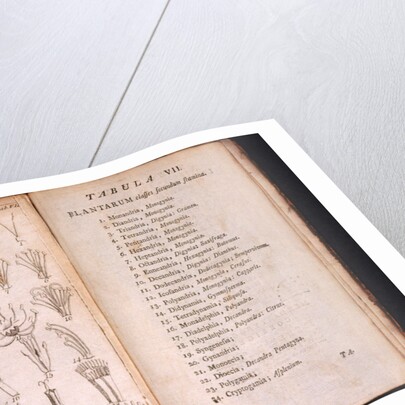 TABULA VII.
PLANTARUM classes secundum stamina.
1. Monandria, Monogynia.
2. Diandria, Monogynia:
3. Triandria, Digynia:
4. Tetrandria, Monogynia.
5. Pentandria, Monogynia.
6. Hexandria, Monogynia.
7. Heptandria,
8. Octandria, Digynia:
9. Enneandria, Hexagynia:
10. Decandria, Digynia:
11. Dodecandria,
12. Icosandria, Monogynia,
13. Polyandria, Monogynia:
14. Didynamia, Gymnosperma.
15. Tetradynamia, Siliquosa.
16. Monadelphia, Decandra.
17. Diadelphia, Decandra.
18. Polyadelphia, Polyandra:
19. Syngenesia;
20. Gynandria;
21. Monoecia;
22. Dioecia; Decandra Pentagyna.
23. Polygamia;
24. Cryptogamia; Asplenium.
TA-
14